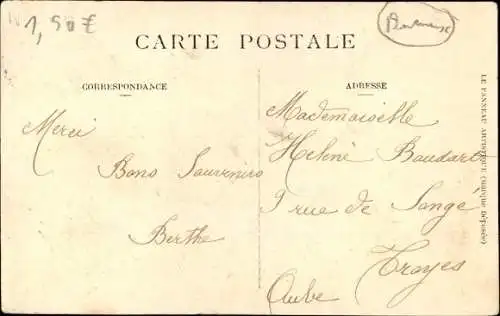 1,50 €
CARTE POSTALE
CORRESPONDANCE
ADRESSE
Merci
Bons Souvenirs
Berthe
Mademoiselle
Helène Baudart
9 rue de Longé
Troyes
Aube
LE PANNEAU ARTISTIQUE (Marque Déposée)